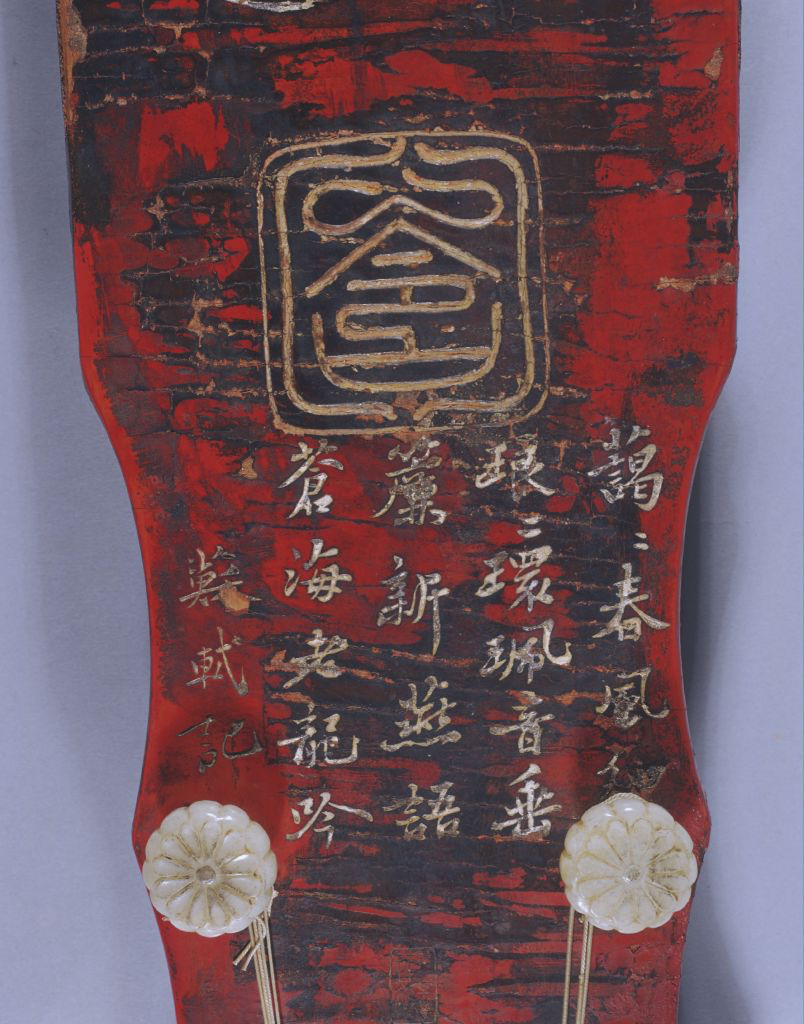 包含
藹〻春風細
琅〻環珮音垂
簾新燕語
蒼海老龍吟
蘇軾記